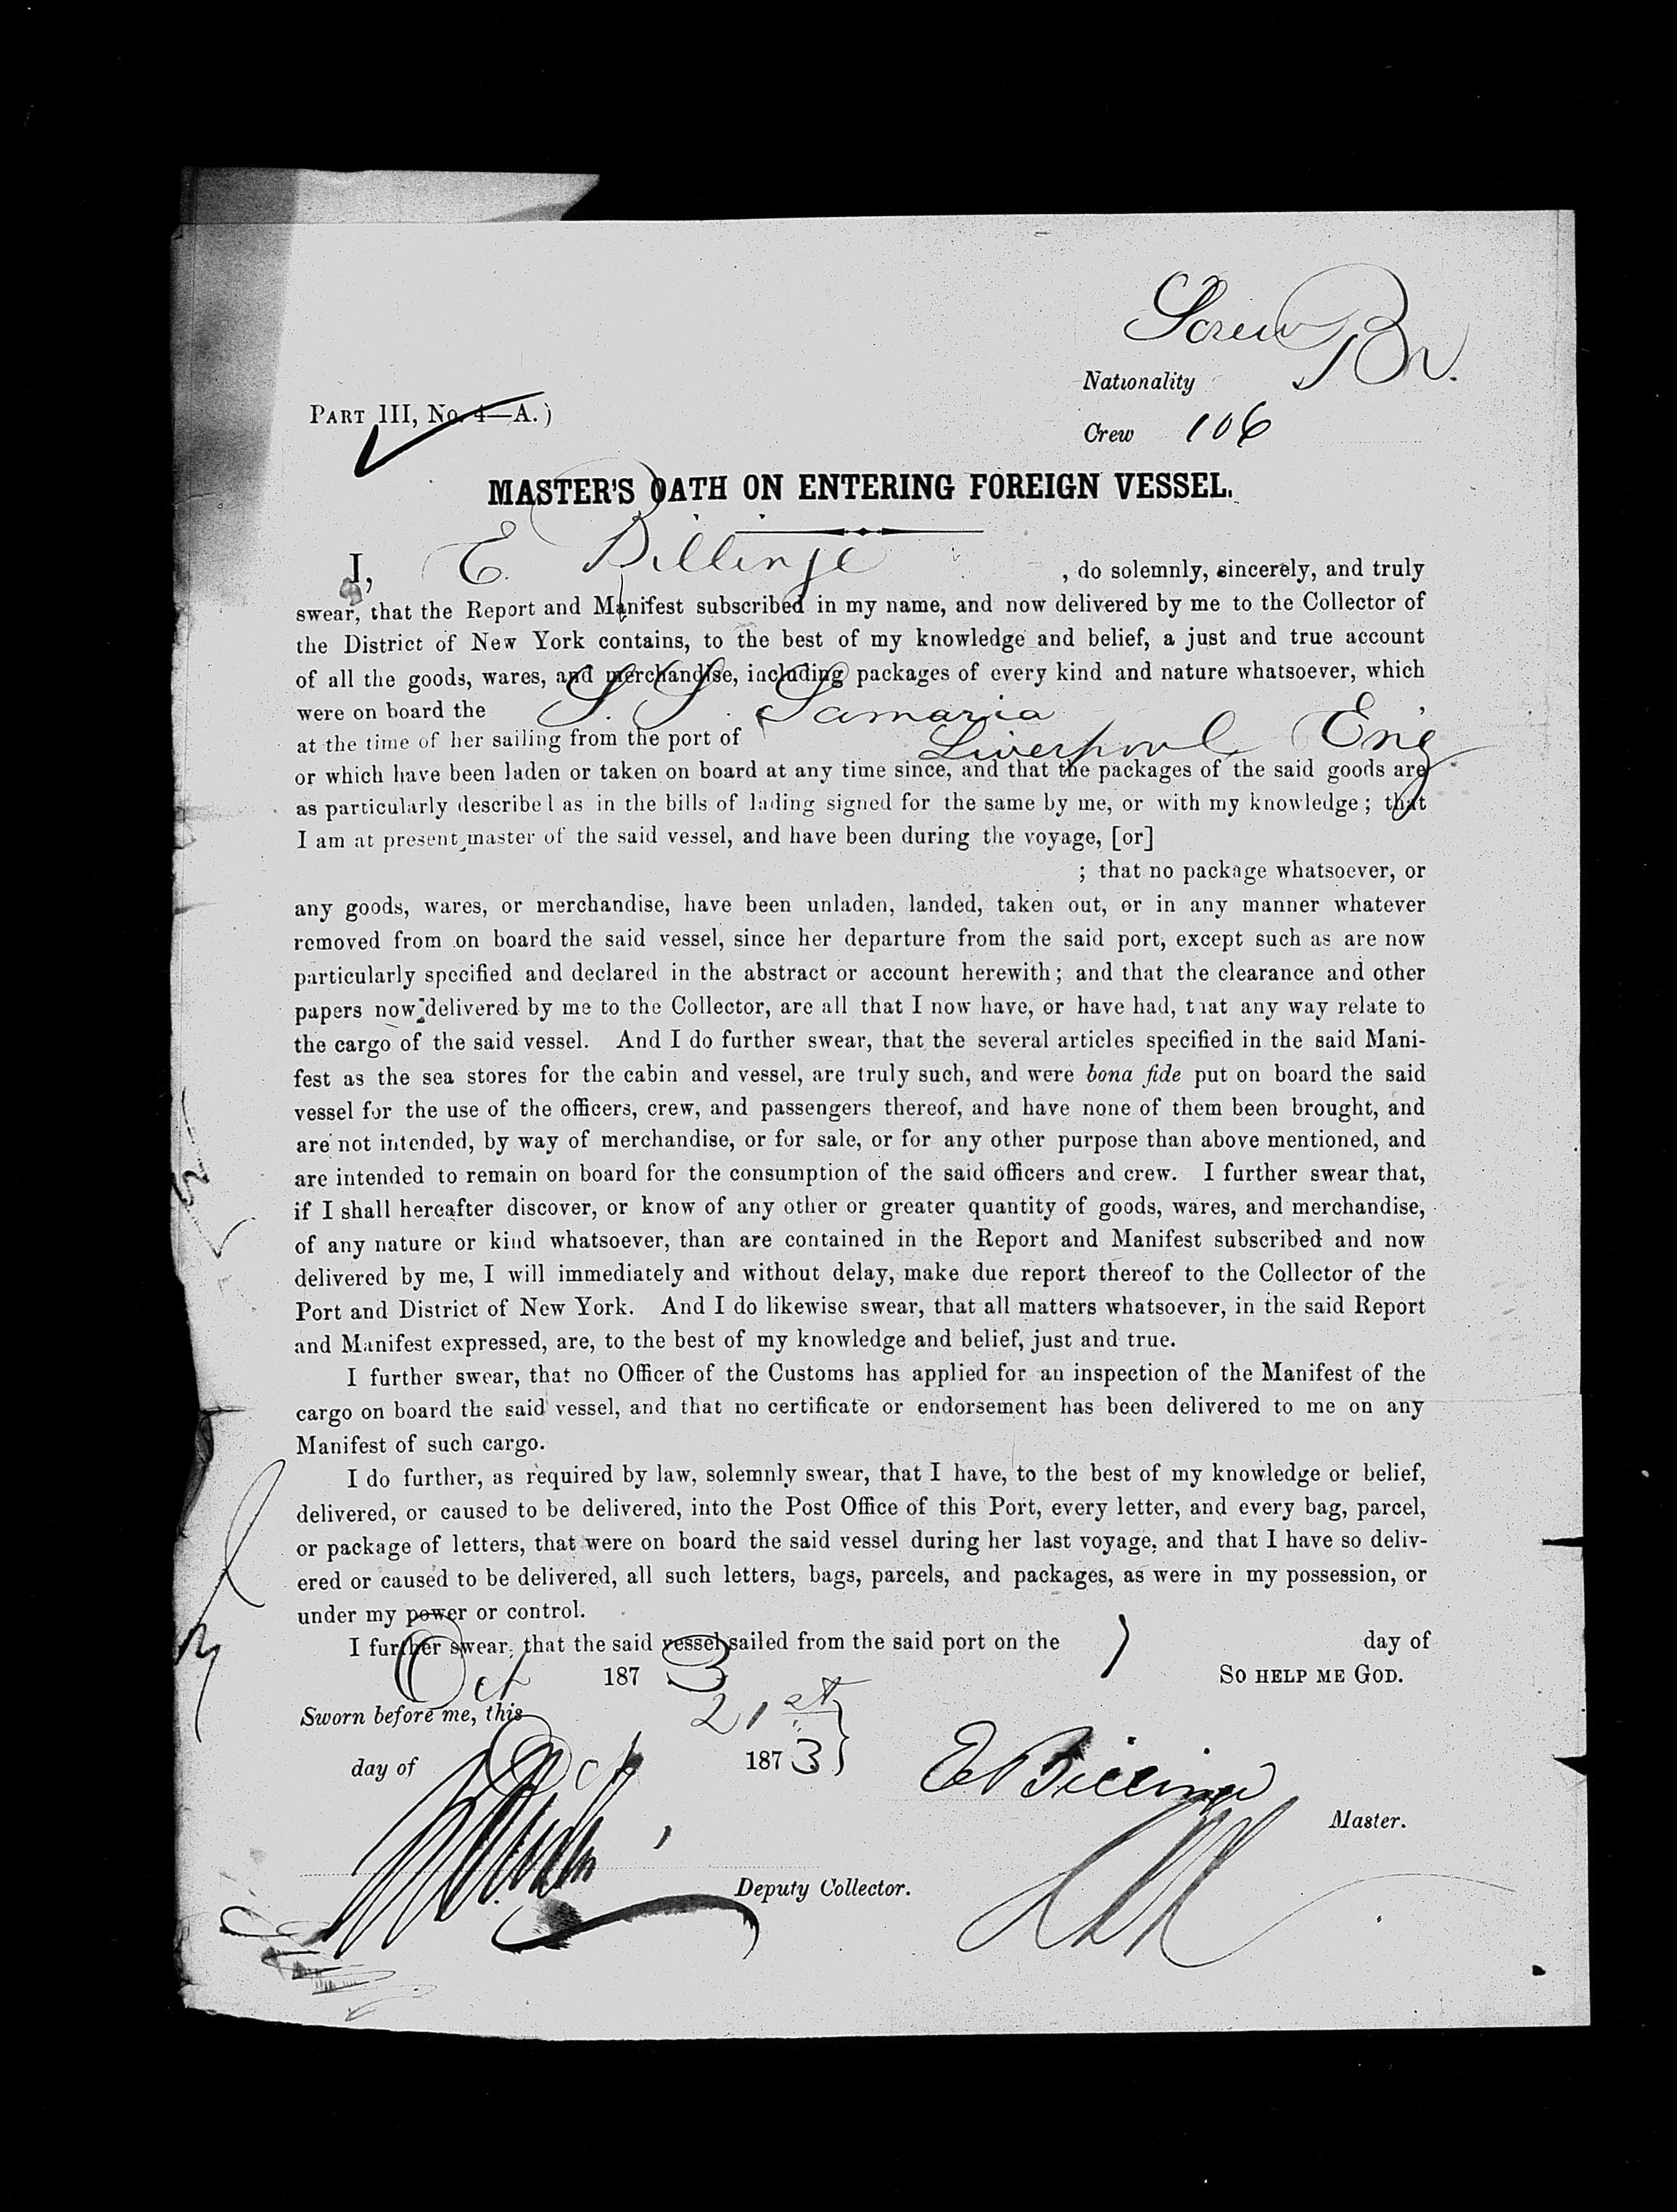 Screw
Nationality Br.
PART III, No. 4—A.)
Crew 106
MASTER'S OATH ON ENTERING FOREIGN VESSEL.
I, E. Billinge , do solemnly, sincerely, and truly
swear, that the Report and Manifest subscribed in my name, and now delivered by me to the Collector of
the District of New York contains, to the best of my knowledge and belief, a just and true account
of all the goods, wares, and merchandise, including packages of every kind and nature whatsoever, which
were on board the S. S. Samaria
at the time of her sailing from the port of Liverpool Eng
or which have been laden or taken on board at any time since, and that the packages of the said goods are
as particularly describel as in the bills of lading signed for the same by me, or with my knowledge; that
I am at present master of the said vessel, and have been during the voyage, [or]
; that no package whatsoever, or
any goods, wares, or merchandise, have been unladen, landed, taken out, or in any manner whatever
removed from on board the said vessel, since her departure from the said port, except such as are now
particularly specified and declared in the abstract or account herewith; and that the clearance and other
papers now delivered by me to the Collector, are all that I now have, or have had, that any way relate to
the cargo of the said vessel. And I do further swear, that the several articles specified in the said Mani-
fest as the sea stores for the cabin and vessel, are truly such, and were bona fide put on board the said
vessel for the use of the officers, crew, and passengers thereof, and have none of them been brought, and
are not intended, by way of merchandise, or for sale, or for any other purpose than above mentioned, and
are intended to remain on board for the consumption of the said officers and crew. I further swear that,
if I shall hereafter discover, or know of any other or greater quantity of goods, wares, and merchandise,
of any nature or kind whatsoever, than are contained in the Report and Manifest subscribed and now
delivered by me, I will immediately and without delay, make due report thereof to the Collector of the
Port and District of New York. And I do likewise swear, that all matters whatsoever, in the said Report
and Manifest expressed, are, to the best of my knowledge and belief, just and true.
I further swear, that no Officer of the Customs has applied for an inspection of the Manifest of the
cargo on board the said vessel, and that no certificate or endorsement has been delivered to me on any
Manifest of such cargo.
I do further, as required by law, solemnly swear, that I have, to the best of my knowledge or belief,
delivered, or caused to be delivered, into the Post Office of this Port, every letter, and every bag, parcel,
or package of letters, that were on board the said vessel during her last voyage, and that I have so deliv-
ered or caused to be delivered, all such letters, bags, parcels, and packages, as were in my possession, or
under my power or control.
I further swear, that the said vessel sailed from the said port on the day of
Oct 1873 SO HELP ME GOD.
Sworn before me, this 21st
day of Oct 1873 E Billinge
Master.
Deputy Collector.